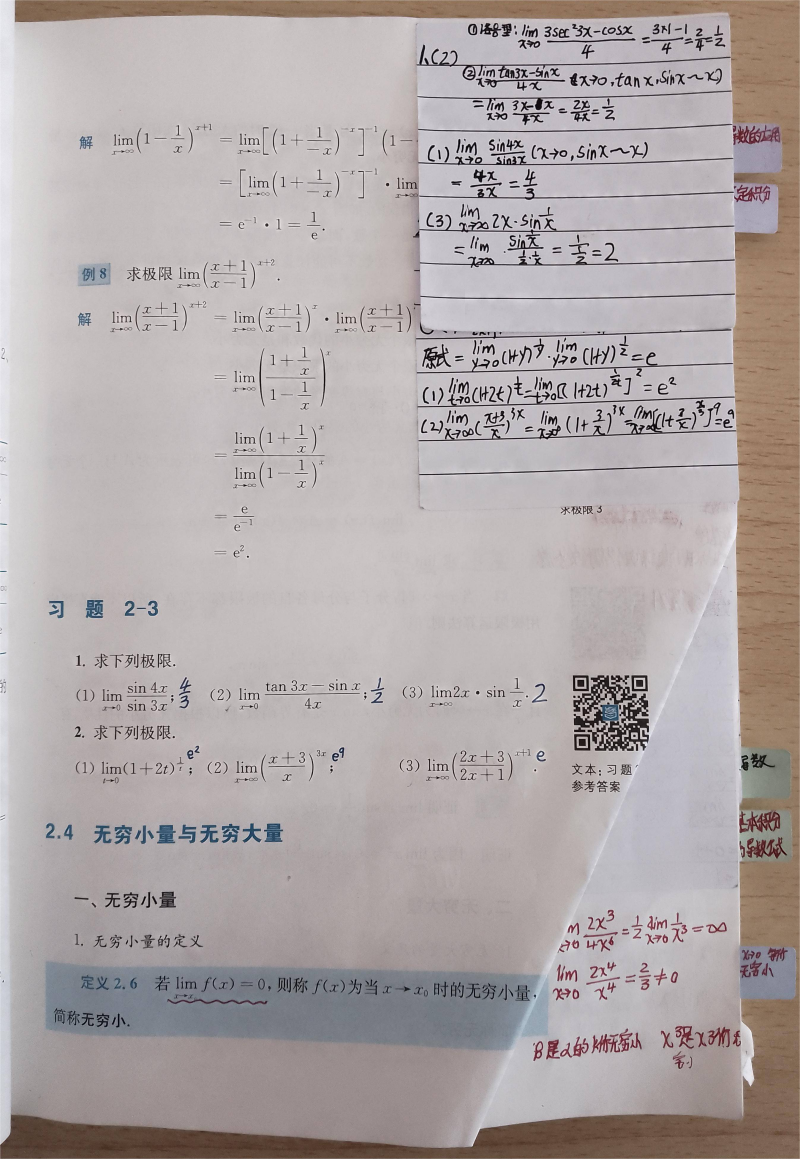 解 lim x→∞ (1-1/x)^(x+1) = lim x→∞ [(1+1/-x)^(-x)]^(-1) (1-
= [lim x→∞ (1+1/-x)^(-x)]^(-1) · lim x→∞
= e^(-1) · 1 = 1/e.
例 8 求极限 lim x→∞ ((x+1)/(x-1))^(x+2).
解 lim x→∞ ((x+1)/(x-1))^(x+2) = lim x→∞ ((x+1)/(x-1))^x · lim x→∞ ((x+1)/(x-1))
= lim x→∞ ((1+1/x)/(1-1/x))^x
= lim x→∞ (1+1/x)^x / lim x→∞ (1-1/x)^x
= e/e^(-1)
= e².
①洛必型: lim x→0 (3sec²3x-cosx)/4 = (3×1-1)/4 = 2/4 = 1/2
1.(2)
② lim x→0 (tan3x-sinx)/4x (x→0, tanx, sinx~x)
= lim x→0 (3x-x)/4x = 2x/4x = 1/2
(1) lim x→0 sin4x/sin3x (x→0, sinx~x)
= 4x/3x = 4/3
(3) lim x→∞ 2x·sin 1/x
= lim x→∞ sin 1/x / (1/2·1/x) = 1/(1/2) = 2
原式 = lim y→0 (1+y)^(1/y) · lim y→0 (1+y)^(1/2) = e
(1) lim t→0 (1+2t)^(1/t) = lim t→0 [(1+2t)^(1/2t)]² = e²
(2) lim x→∞ ((x+3)/x)^(3x) = lim x→∞ (1+3/x)^(3x) = lim x→∞ [(1+3/x)^(x/3)]^9 = e^9
求极限 3
习 题 2-3
1. 求下列极限.
(1) lim x→0 sin 4x/sin 3x; 4/3 (2) lim x→0 (tan 3x-sin x)/4x; 1/2 (3) lim x→∞ 2x·sin 1/x. 2
2. 求下列极限.
(1) lim t→0 (1+2t)^(1/t); e² (2) lim x→∞ ((x+3)/x)^(3x); e^9 (3) lim x→∞ ((2x+3)/(2x+1))^(x+1). e
文本: 习题
参考答案
2.4 无穷小量与无穷大量
一、无穷小量
1. 无穷小量的定义
定义 2.6 若 lim x→x₀ f(x)=0, 则称 f(x) 为当 x→x₀ 时的无穷小量,
简称无穷小.
lim x→0 2x³/4x⁶ = 1/2 lim x→0 1/x³ = ∞
lim x→0 2x⁴/x⁴ = 2/3 ≠ 0
β是α的k阶无穷小 x³是x
导数的应用
定积分
函数
基本积分
导数公式
x→0 等价
无穷小